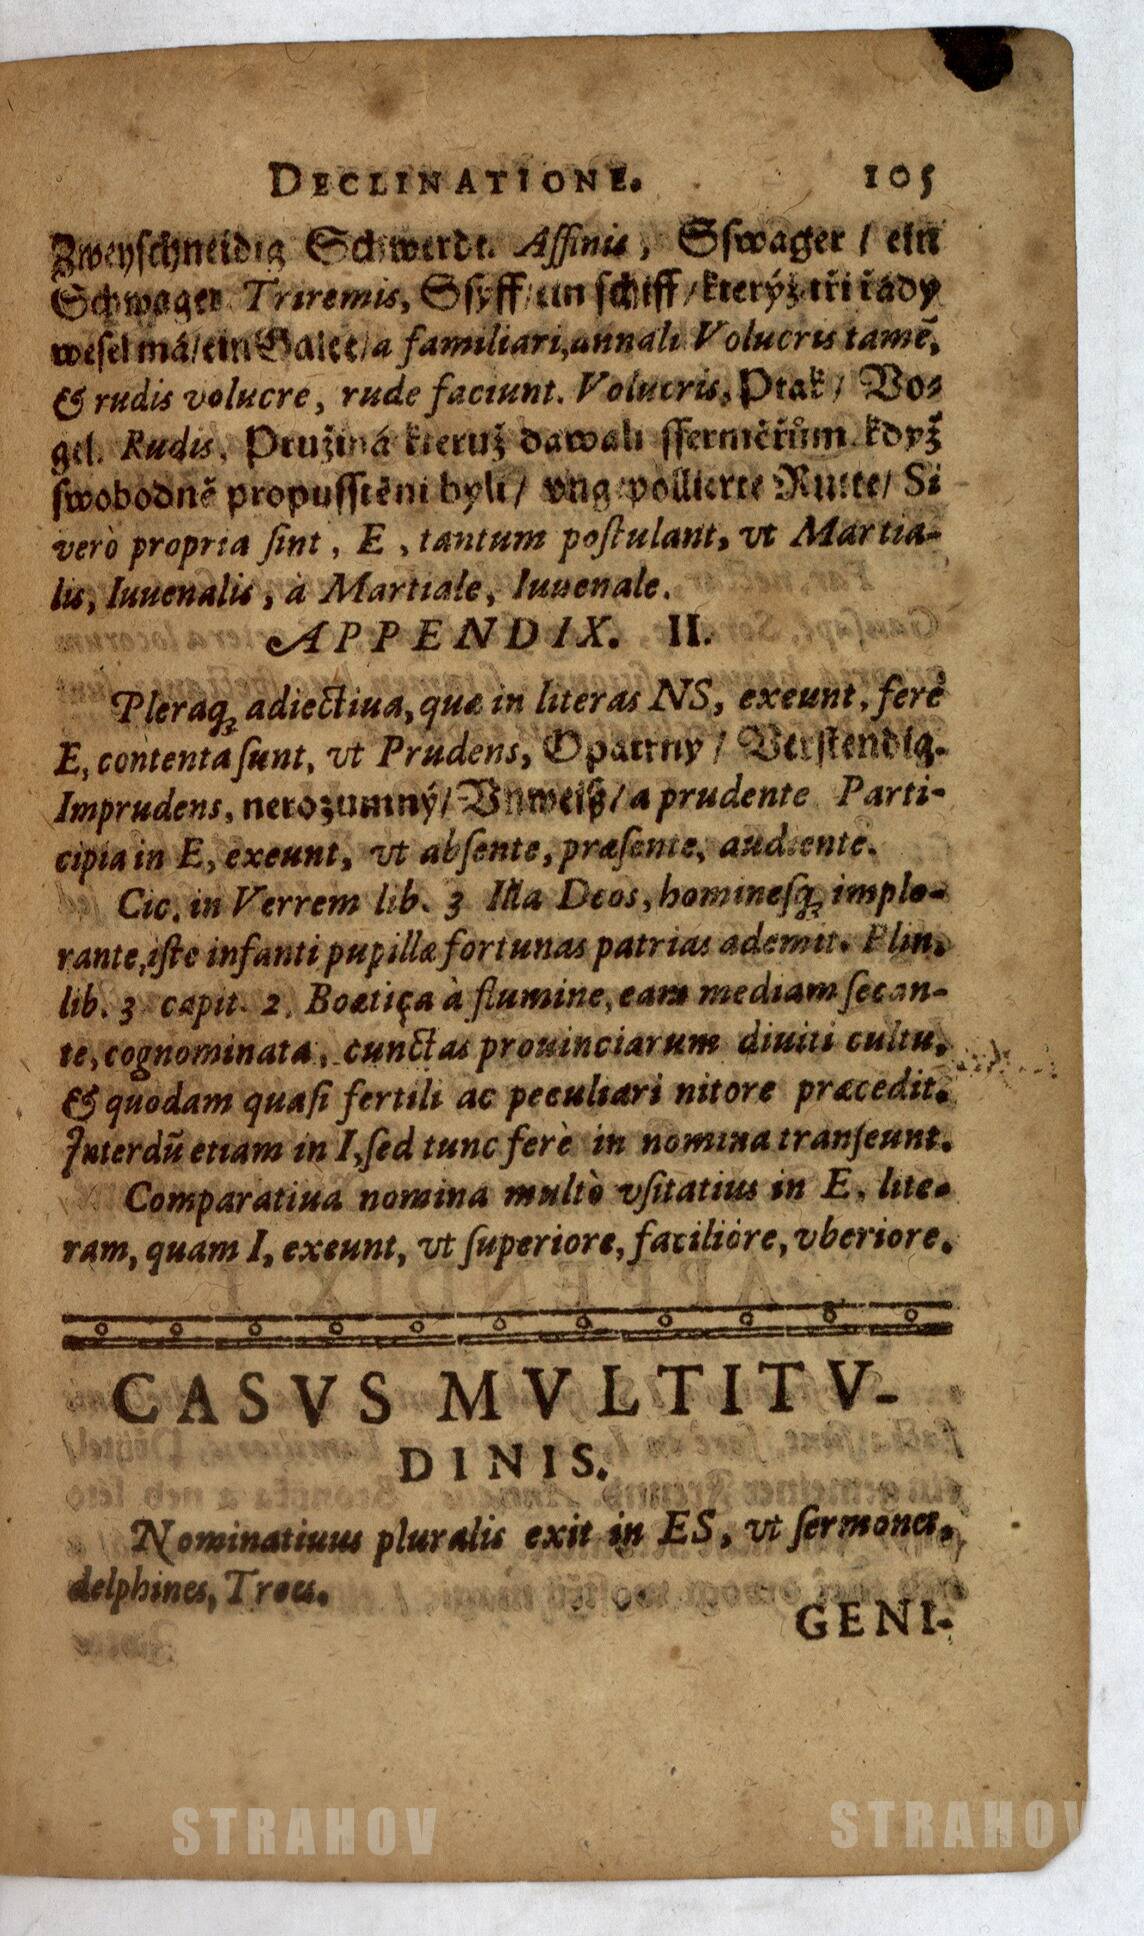 DECLINATIONE. 105
Zweyschneidig Schwerdt. Affinis, Sſwager / ein
Schwager Triremis, Sſyff / ein ſchiff / kterýž tři řády
weſel má / ein Galee / a familiari, annali Volucris tamē,
& rudis volucre, rude faciunt. Volucris, Ptak / Vo⸗
gel. Rudis, Pružiná kteruž dawali ſſerměřům když
ſwobodně propuſſtěni byli / vngepollierte Rutte / Si
verò propria ſint, E, tantum poſtulant, vt Martia-
lis, Iuuenalis, à Martiale, Iuuenale.
APPENDIX. II.
Pleraq; adiectiua, quæ in literas NS, exeunt, ferè
E, contenta ſunt, vt Prudens, Opatrny / Verſtendig.
Imprudens, nerozumný / Vnweiß / a prudente Parti-
cipia in E, exeunt, vt abſente, præſente, audiente.
Cic. in Verrem lib. 3 Illa Deos, hominesq; implo-
rante, iſte infanti pupillæ fortunas patrias ademit. Plin.
lib. 3 capit. 2. Boætiça à flumine, eam mediam ſecan-
te, cognominata, cunctas prouinciarum diuiti cultu,
& quodam quaſi fertili ac peculiari nitore præcedit.
Interdū etiam in I, ſed tunc ferè in nomina tranſeunt.
Comparatiua nomina multò vſitatius in E, lite-
ram, quam I, exeunt, vt ſuperiore, faciliore, vberiore.
CASVS MVLTITV-
DINIS.
Nominatiuus pluralis exit in ES, vt ſermones,
delphines, Troes.
GENI-
STRAHOV STRAHOV